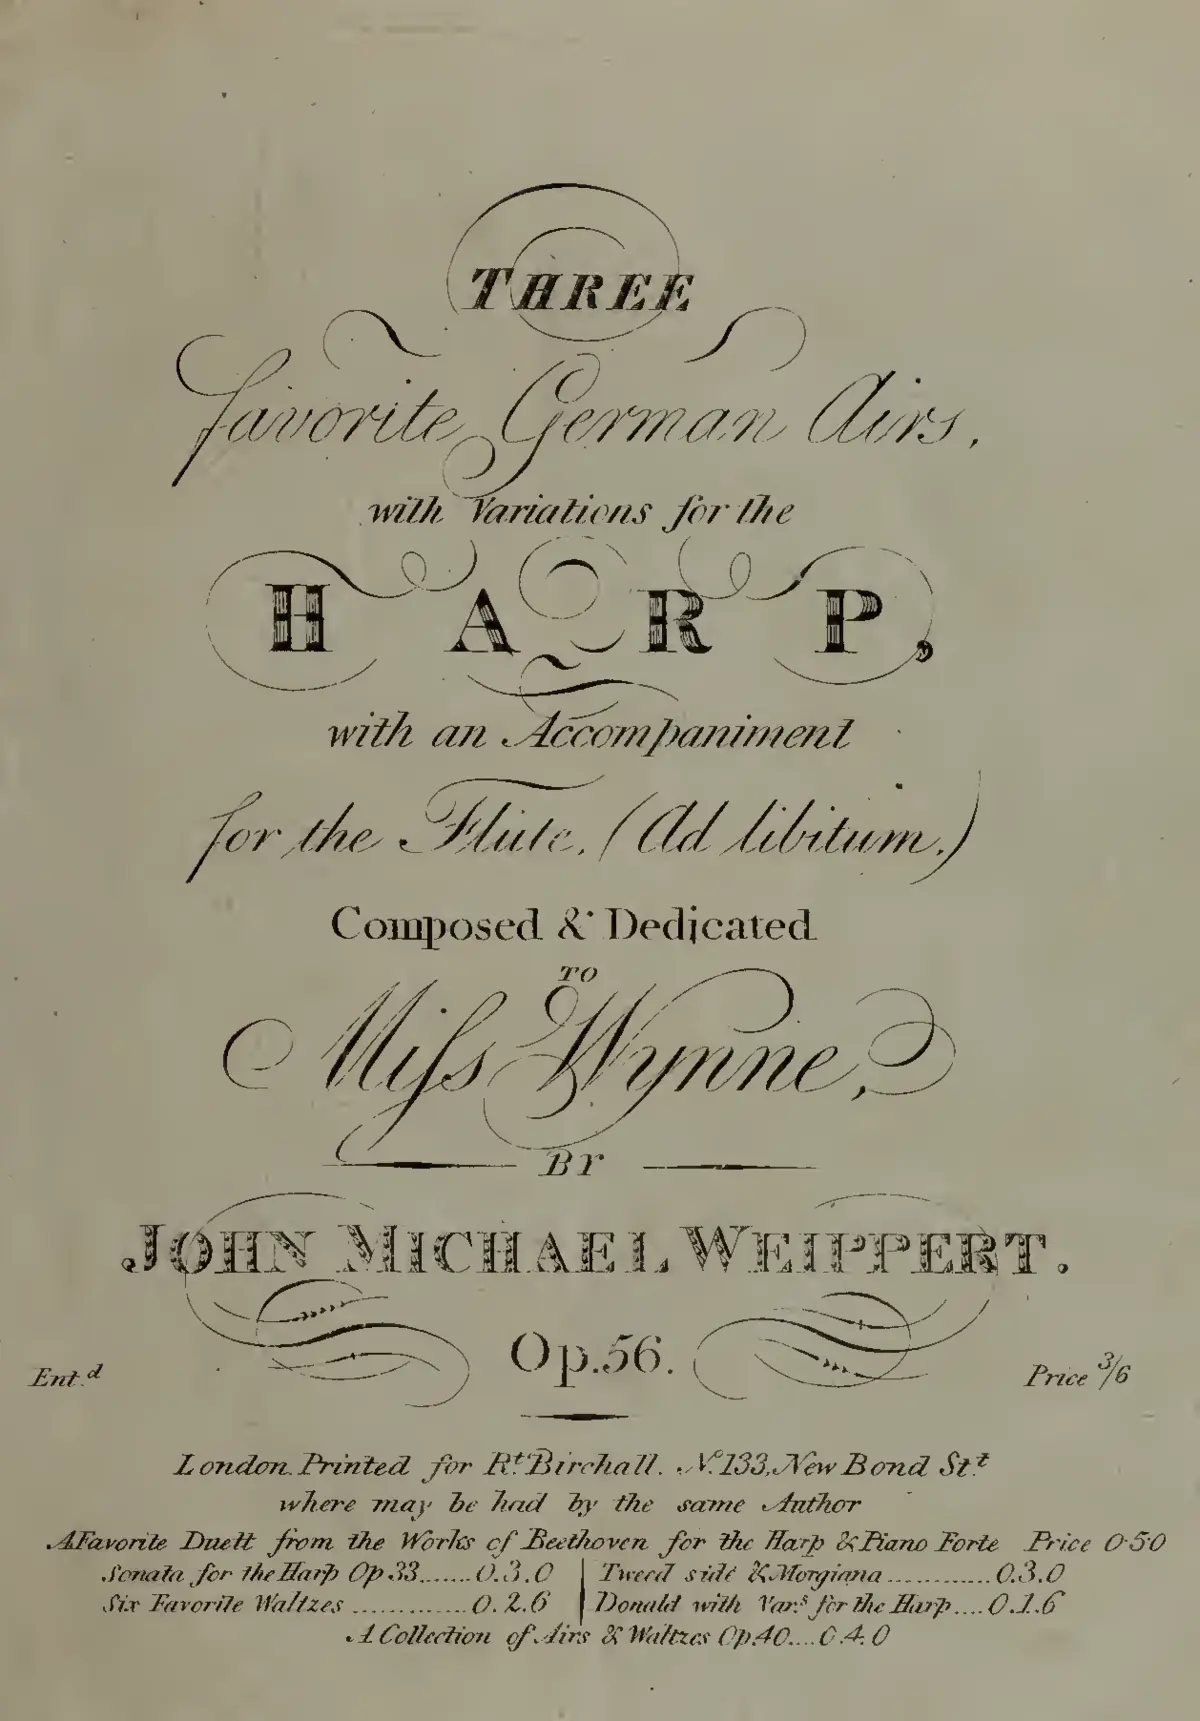 THREE
favorite German Airs,
with Variations for the
HARP,
with an Accompaniment
for the Flute, (Ad libitum.)
Composed & Dedicated
TO
Miſs Wynne,
BY
JOHN MICHAEL WEIPPERT.
Op. 56.
Ent.d Price 3/6
London. Printed for Rt. Birchall. No. 133, New Bond St.t
where may be had by the same Author
A Favorite Duett from the Works of Beethoven for the Harp & Piano Forte Price 0·5·0
Sonata for the Harp Op 33.......0.3.0 | Tweed side & Morgiana.............0.3.0
Six Favorite Waltzes ..............0.2.6 | Donald with Var.s for the Harp....0.1.6
A Collection of Airs & Waltzes Op.40....0.4.0